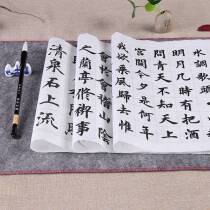 水調歌頭
明月几時有把酒
問青天不知天上
宮闕今夕是何年
我欲乘風歸去惟
會稽山陰
之蘭亭修禊事
清泉石上流